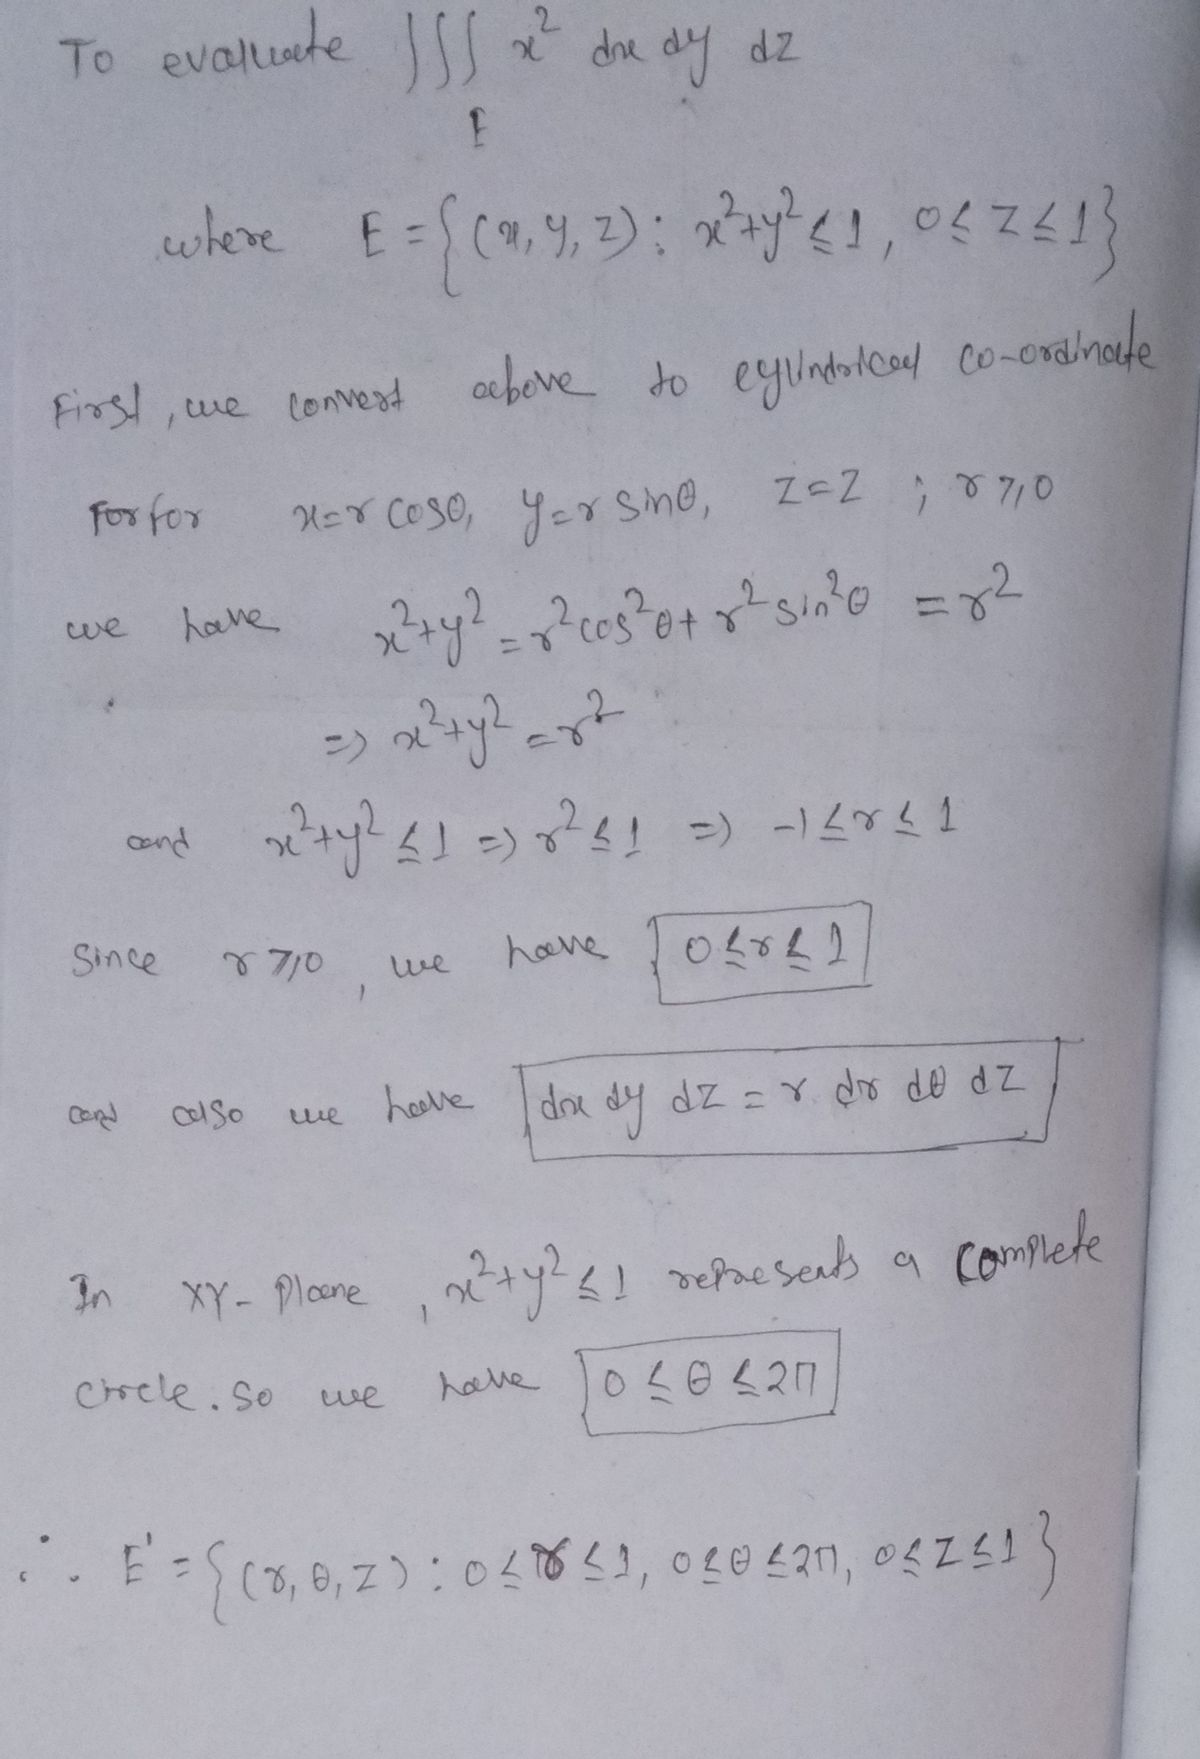 To evaluate ∫∫∫ x² dx dy dz
E
where E = {(x, y, z) : x²+y² ≤ 1, 0 ≤ z ≤ 1}
First, we convert above to cylindrical co-ordinate
For for x = r cosθ, y = r sinθ, z = z ; r ≥ 0
we have x²+y² = r² cos²θ + r² sin²θ = r²
⇒ x²+y² = r²
and x²+y² ≤ 1 ⇒ r² ≤ 1 ⇒ -1 ≤ r ≤ 1
Since r ≥ 0, we have 0 ≤ r ≤ 1
and also we have dx dy dz = r dr dθ dz
In XY-Plane, x²+y² ≤ 1 represents a complete
circle. So we have 0 ≤ θ ≤ 2π
∴ E' = {(r, θ, z) : 0 ≤ r ≤ 1, 0 ≤ θ ≤ 2π, 0 ≤ z ≤ 1}